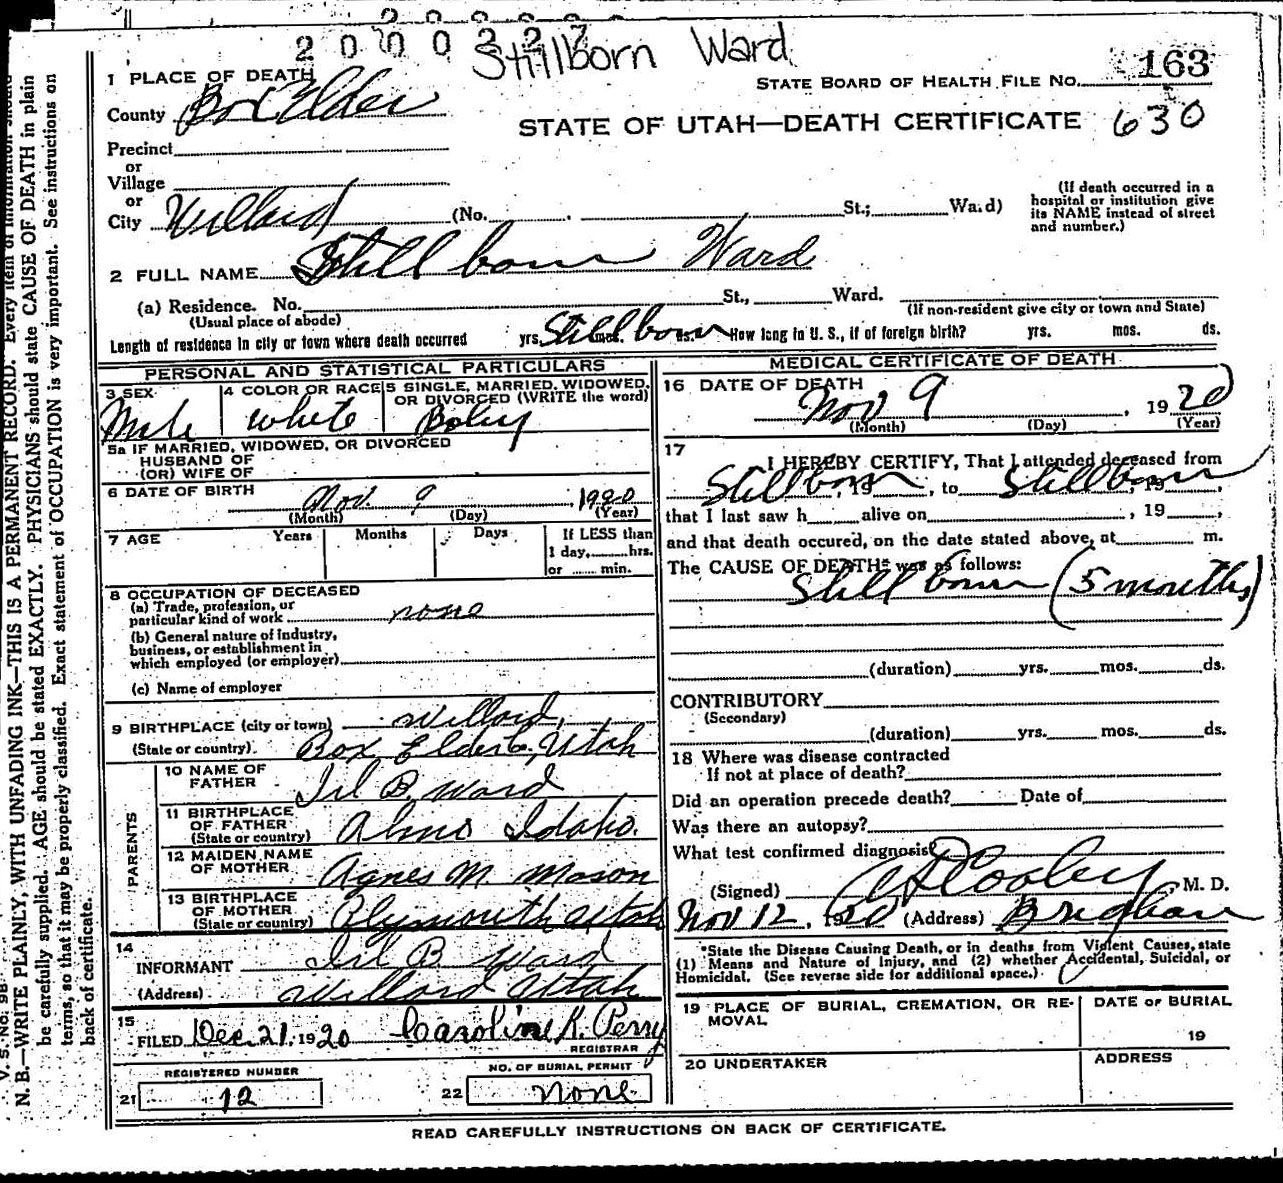 2000327
Stillborn Ward
163
STATE BOARD OF HEALTH FILE NO.
STATE OF UTAH—DEATH CERTIFICATE 630
1 PLACE OF DEATH
County Box Elder
Precinct
or
Village
or
City Willard (No. St.; Wa.d)
(If death occurred in a
hospital or institution give
its NAME instead of street
and number.)
2 FULL NAME Stillborn Ward
(a) Residence. No. St., Ward.
(Usual place of abode)
(If non-resident give city or town and State)
Length of residence in city or town where death occurred yrs. Stillborn mos. ds. How long in U. S., if of foreign birth? yrs. mos. ds.
PERSONAL AND STATISTICAL PARTICULARS
3 SEX
Male
4 COLOR OR RACE
White
5 SINGLE, MARRIED, WIDOWED,
OR DIVORCED (WRITE the word)
5a IF MARRIED, WIDOWED, OR DIVORCED
HUSBAND OF
(OR) WIFE OF
6 DATE OF BIRTH Nov. 9, 1920
(Month) (Day) (Year)
7 AGE Years Months Days
If LESS than
1 day, hrs.
or min.
8 OCCUPATION OF DECEASED
(a) Trade, profession, or
particular kind of work none
(b) General nature of industry,
business, or establishment in
which employed (or employer)
(c) Name of employer
9 BIRTHPLACE (city or town) Willard,
(State or country) Box Elder Co, Utah
PARENTS
10 NAME OF
FATHER B. Ward
11 BIRTHPLACE
OF FATHER
(State or country) Almo Idaho.
12 MAIDEN NAME
OF MOTHER Agnes M Mason
13 BIRTHPLACE
OF MOTHER
(State or country) Plymouth Utah
14
INFORMANT B. Ward
(Address) Willard Utah
15
FILED Dec. 21, 1920 Caroline K. Perry
REGISTRAR
REGISTERED NUMBER
21 12
NO. OF BURIAL PERMIT
22 None
MEDICAL CERTIFICATE OF DEATH
16 DATE OF DEATH
Nov 9, 1920
(Month) (Day) (Year)
17
I HEREBY CERTIFY, That I attended deceased from
Stillborn, 19 , to Stillborn, 19 ,
that I last saw h alive on , 19 ,
and that death occured, on the date stated above, at m.
The CAUSE OF DEATH* was as follows:
Stillborn (5 months)
(duration) yrs. mos. ds.
CONTRIBUTORY
(Secondary)
(duration) yrs. mos. ds.
18 Where was disease contracted
If not at place of death?
Did an operation precede death? Date of
Was there an autopsy?
What test confirmed diagnosis?
(Signed) Cooley, M. D.
Nov 12, 1920 (Address) Brigham
*State the Disease Causing Death, or in deaths from Violent Causes, state
(1) Means and Nature of Injury, and (2) whether Accidental, Suicidal, or
Homicidal. (See reverse side for additional space.)
19 PLACE OF BURIAL, CREMATION, OR RE-
MOVAL
DATE OF BURIAL
19
20 UNDERTAKER
ADDRESS
READ CAREFULLY INSTRUCTIONS ON BACK OF CERTIFICATE.
N. B.—WRITE PLAINLY, WITH UNFADING INK—THIS IS A PERMANENT RECORD. Every item of information should
be carefully supplied. AGE should be stated EXACTLY. PHYSICIANS should state CAUSE OF DEATH in plain
terms, so that it may be properly classified. Exact statement of OCCUPATION is very important. See instructions on
back of certificate.